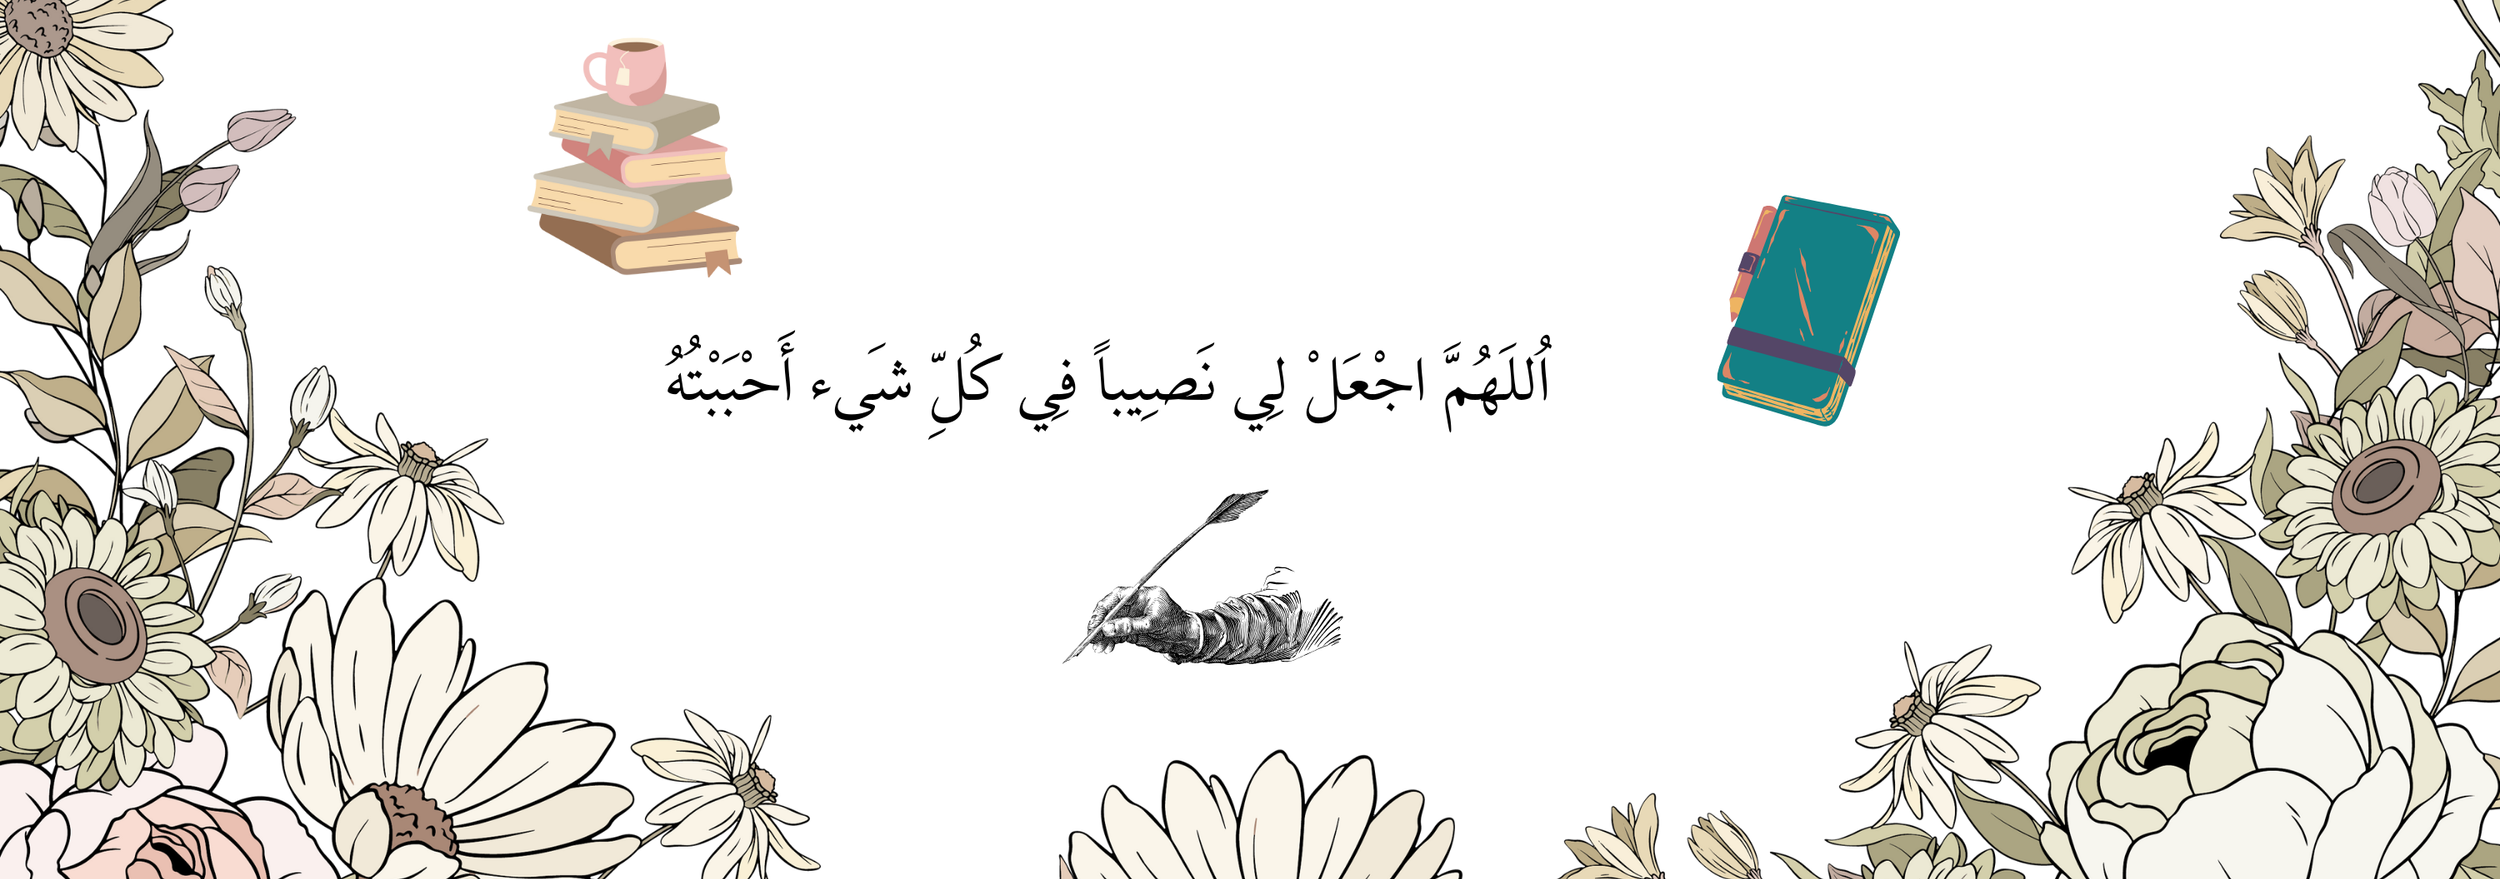 اُللَهُمَّ اجْعَلْ لِي نَصِيِباً فِي كُلِّ شَيء أَحْبَبْتُهُ